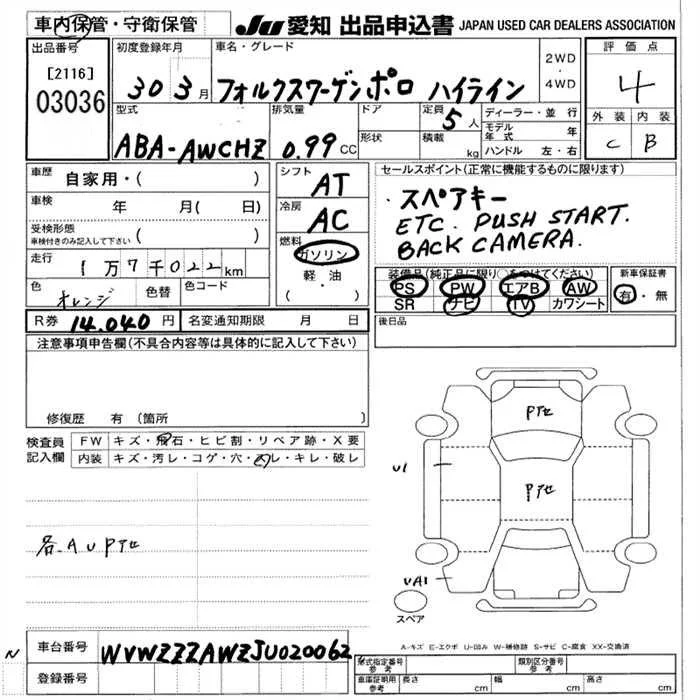 車内保管・守衛保管
JU 愛知 出品申込書 JAPAN USED CAR DEALERS ASSOCIATION
出品番号
[2116]
03036
初度登録年月
30 3月
車名・グレード
フォルクスワーゲンポロ ハイライン
2WD
・
4WD
評価点
4
外装 内装
C B
型式
ABA-AWCHZ
排気量
0.99 CC
ドア
形状
定員
5人
積載
kg
ディーラー・並行
モデル年式 年
ハンドル 左・右
車歴 自家用・( )
車検 年 月(日)
受検形態
車検付きのみ記入して下さい ( )
走行 1万7千022km
色 オレンジ 色替 色コード
R券 14,040円 名変通知期限 月 日
シフト
AT
冷房
AC
燃料
ガソリン
軽・油
(・ )
セールスポイント(正常に機能するものに限ります)
・スペアキー
ETC. PUSH START.
BACK CAMERA.
装備品(純正品に限り○をつけてください)
PS PW エアB AW
SR ナビ TV カワシート
新車保証書
有・無
後日品
注意事項申告欄(不具合内容等は具体的に記入して下さい)
修復歴 有(箇所 )
検査員
記入欄
FW キズ・飛石・ヒビ割・リペア跡・X要
内装 キズ・汚レ・コゲ・穴・スレ・キレ・破レ
各.AU
P
P
U1
UA1
スペア
A-キズ E-エクボ U-凹み W-補修跡 S-サビ C-腐食 XX-交換済
N
車台番号 WVWZZZAWZJU020062
登録番号
形式指定番号
参考
類別区分番号
参考
車庫証明用
参考
長さ cm 幅 cm 高さ cm